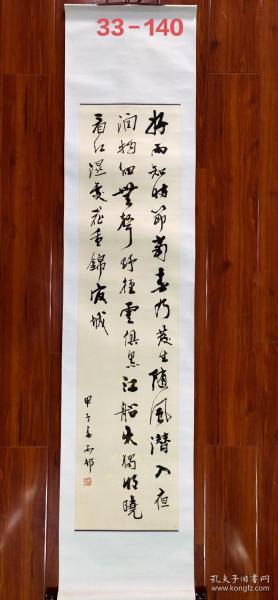 33-140
好雨知時節當春乃發生隨風潛入夜
潤物細無聲野徑雲俱黑江船火獨明曉
看紅濕處花重錦官城
甲子春雨邨
孔夫子旧书网